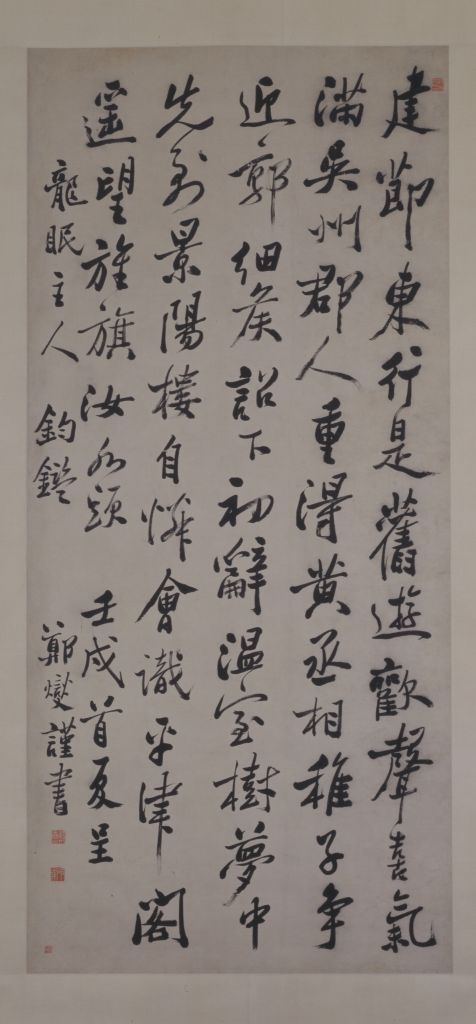 建節東行是舊遊歡聲喜氣
滿吳州郡人重得黃丞相稚子争
迎郭細侯詔下初辭温室樹夢中
先到景陽樓自憐會識平津閣
遥望旌旗汝水頭 壬戌首夏呈
龍眠主人 鈞鑒 鄭燮謹書